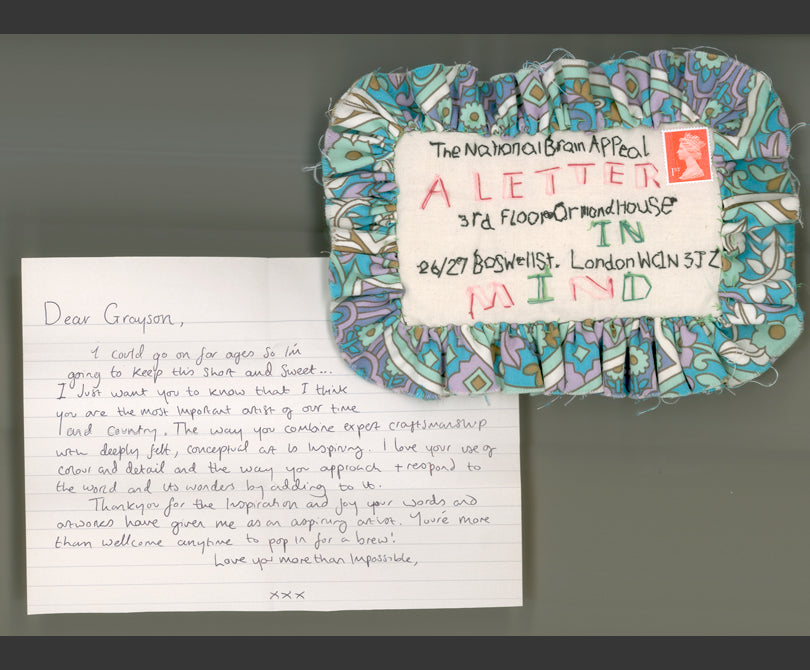 The National Brain APPeal
A LETTER
3rd Floor Ormond HOUSE
IN
26/27 Boswell St. London WC1N 3JZ
MIND
1ST
Dear Grayson,
I could go on for ages so I'm
going to keep this short and sweet...
I Just want you to know that I think
you are the most important artist of our time
and country. The way you combine expert craftsmanship
with deeply felt, conceptual art is inspiring. I love your use of
colour and detail and the way you approach + respond to
the world and its wonders by adding to it.
Thankyou for the inspiration and joy your words and
artworks have given me as an aspiring artist. You're more
than wellcome anytime to pop in for a brew!
Love you more than Impossible,
xxx